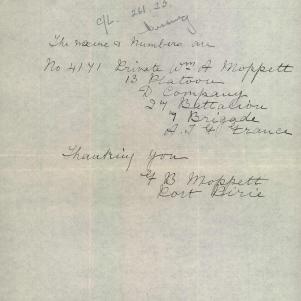 C/L. 261.23.
The name & Numbers are
No 4171 Private Wm A Moppett
13 Platoon
D Company
27 Battalion
7 Brigade
A.I.F. France
Thanking You
B Moppett
Port Pirie